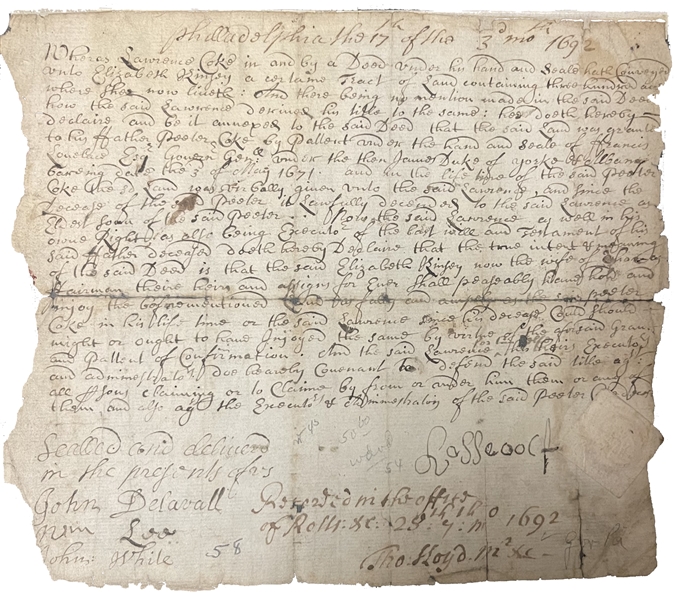 Philladelphia the 17th of the 3d moth 1692
Wheras Lawrence Coke in and by a Deed under his hand and Seale hath Conveyed
unto Elizabeth Kinsey a certaine Tract of Land containing three hundred acr
where shee now liveth: And there being no mention made in the said Deed
how the said Lawrence derives his title to the same: hee doeth hereby
declaire and be it annexed to the said Deed that the said Land was grant
to his ffather Peeter Coke by Pattent under the hand and Seale of Francis
Lovelace Esqr Govern Genll under the then James Duke of Yorke & Albany
bareing date the of May 1671: and in the life time of the said Peeter
Coke the sd Land was verbally given unto the said Lawrence, and since the
decease of the said Peeter it Lawfully decended to the said Lawrence as
Eldest Sonn of the said Peeter: Now the said Lawrence as well in his
owne Right as also being Executor of the last will and Testament of his
said ffather deceased doeth hereby Declaire that the true intent & meaning
of the said Deed is that the said Elizabeth Kinsey now the wife of
Fairman theire heirs and assigns for Ever shall peaseably have hold and
injoy the bovementioned Land as fully and amply as the said Peeter
Coke in his life time or the said Lawrence since his decease Could Should
might or ought to have Injoyed the same by virtue of the aforsaid grant
and Pattent of Confirmation: And the said Lawrence for his heirs Executors
and administrators doe heareby Covenant to defend the said title agst
all psons claiming or to Claime by from or under him them or any of
them and also agst the Executors & Administrators of the said Peeter
Sealled and delivered
in the presents of us
John Delavall
Wm Lee
John White 58
54
Lasse Cock
Recorded in the office
of Rolls &c: 25th 7th mo 1692
Tho: Lloyd Mr &c